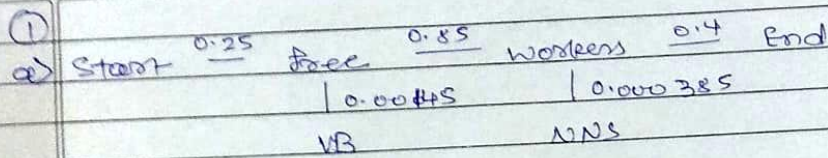 ①
a) Start 0.25 free 0.85 workers 0.4 End
| 0.00145 | 0.000385
VB NNS